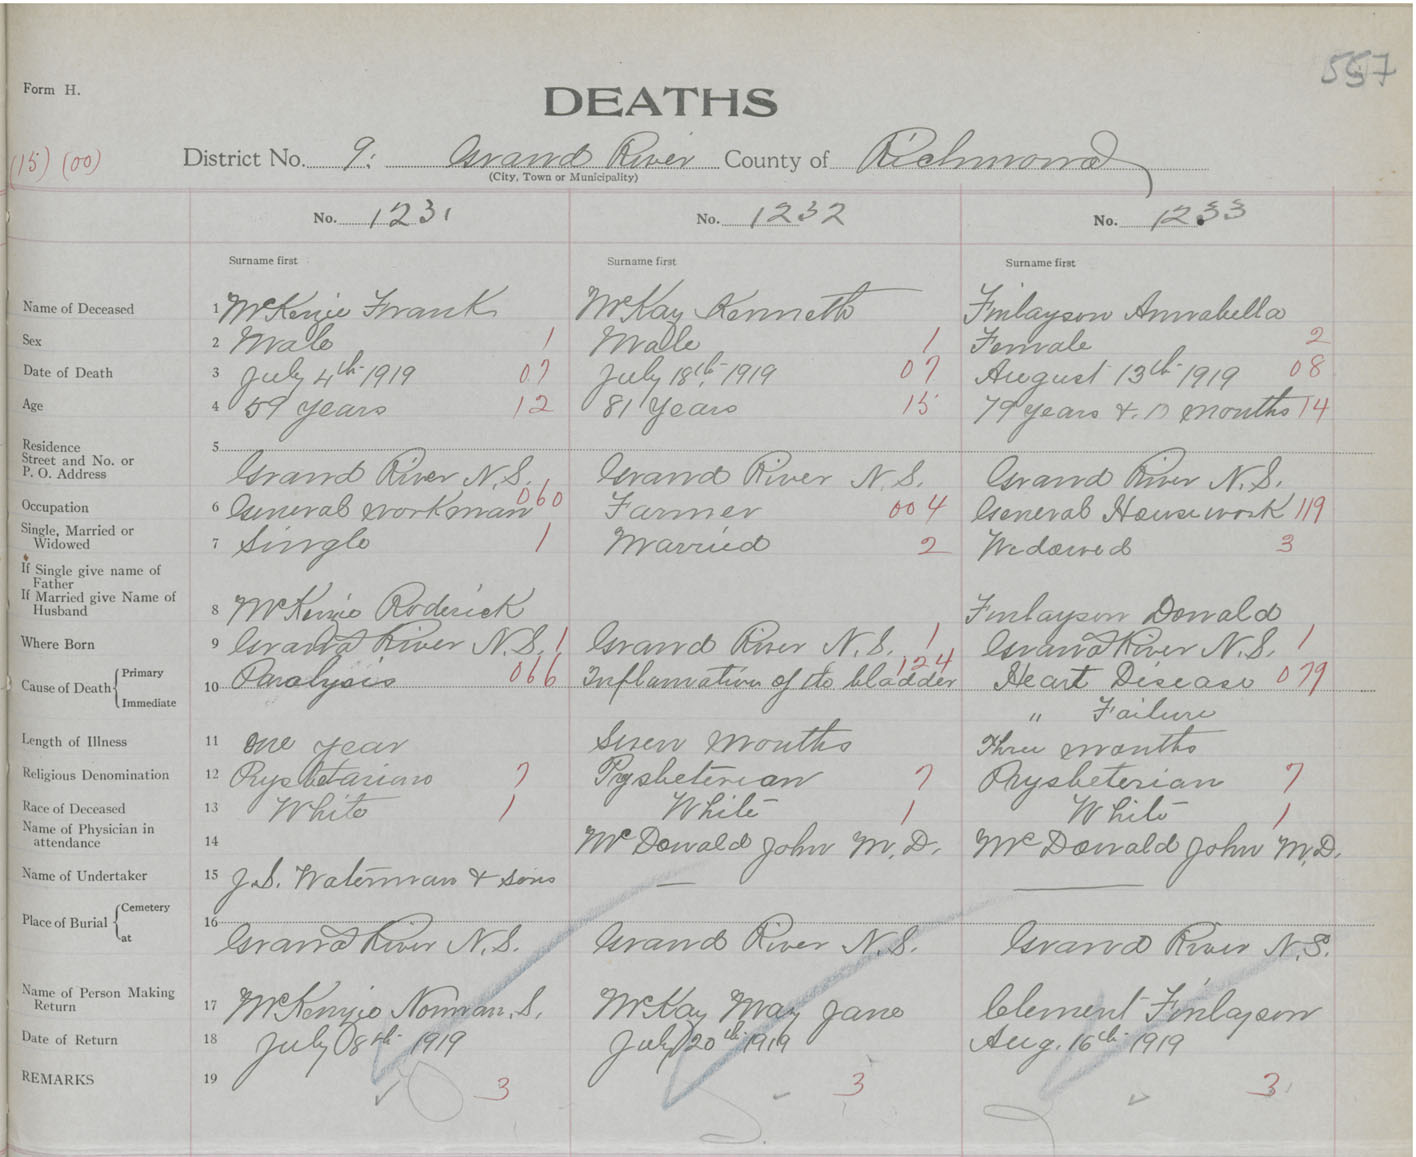 557
Form H.
DEATHS
(15) (00)
District No. 9. Grand River County of Richmond
(City, Town or Municipality)
No. 1231 No. 1232 No. 1233
Surname first Surname first Surname first
Name of Deceased 1 McKenzie Frank McKay Kenneth Finlayson Annabella
Sex 2 Male 1 Male 1 Female 2
Date of Death 3 July 4th 1919 07 July 18th, 1919 07 August 13th 1919 08
Age 4 59 years 12 81 Years 15 79 years &. months 14
Residence 5
Street and No. or
P. O. Address Grand River N.S. Grand River N.S. Grand River N.S.
Occupation 6 General workman 060 Farmer 004 General Housework 119
Single, Married or
Widowed 7 Single 1 Married 2 Widowed 3
If Single give name of
Father
If Married give Name of
Husband 8 McKenzie Roderick Finlayson Donald
Where Born 9 Grand River N.S. 1 Grand River N.S. 1 Grand River N.S. 1
Cause of Death Primary 10 Paralysis 066 Inflamation of the bladder 124 Heart Disease 079
Immediate " Failure
Length of Illness 11 one year Seven months Three months
Religious Denomination 12 Prysbetarians 7 Prysbeterian 7 Prysbeterian 7
Race of Deceased 13 White 1 White 1 White 1
Name of Physician in
attendance 14 McDonald John M.D. McDonald John M.D.
Name of Undertaker 15 J.S. Waterman & Sons — —
Place of Burial Cemetery 16
at Grand River N.S. Grand River N.S. Grand River N.S.
Name of Person Making
Return 17 McKenzie Norman. S. McKay May Jane Clement Finlayson
Date of Return 18 July 8th 1919 July 20th 1919 Aug. 16th 1919
REMARKS 19 3 3 3